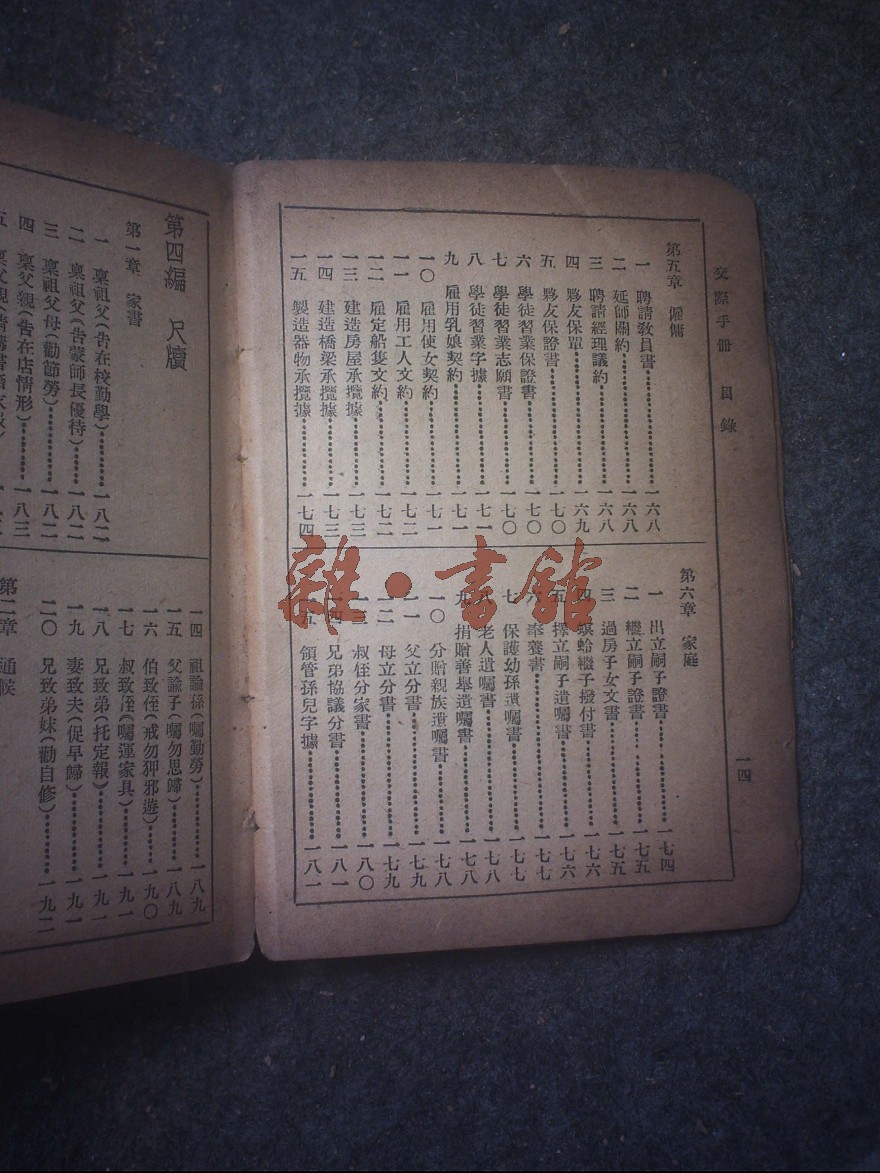 交際手冊 目錄
一四
第五章 僱傭
一 聘請教員書…一六八
二 延師關約…一六八
三 聘請經理議約…一六八
四 夥友保單…一六九
五 夥友保證書…一七〇
六 學徒習業保證書…一七〇
七 學徒習業志願書…一七〇
八 學徒習業字據…一七一
九 雇用乳娘契約…一七一
一〇 雇用使女契約…一七一
一一 雇用工人文約…一七二
一二 雇定船隻文約…一七二
一三 建造房屋承攬據…一七三
一四 建造橋梁承攬據…一七三
一五 製造器物承攬據…一七四
第六章 家庭
一 出立嗣子證書…一七四
二 繼立嗣子證書…一七五
三 過房子女文書…一七五
四 螟蛉繼子撥付書…一七六
五 擇立嗣子遺囑書…一七六
六 奉養書…一七七
七 保護幼孫遺囑書…一七七
八 老人遺囑書…一七八
九 捐贈善舉遺囑書…一七八
一〇 分贈親族遺囑書…一七八
一一 父立分書…一七九
一二 母立分書…一七九
一三 叔侄分家書…一八〇
一四 兄弟協議分書…一八一
一五 領管孫兒字據…一八一
第四編 尺牘
第一章 家書
一 稟祖父(告在校勤學)…一八二
二 稟祖父(告蒙師長優待)…一八二
三 稟祖父母(勸節勞)…一八二
四 稟父親(告在店情形)…一八三
五 稟父親
一四 祖諭孫(囑勤勞)…一八九
一五 父諭子(囑勿思歸)…一八九
一六 伯致侄(戒勿狎邪遊)…一九〇
一七 叔致侄(囑運家具)…一九一
一八 兄致弟(托定報)…一九一
一九 妻致夫(促早歸)…一九一
二〇 兄致弟妹(勸自修)…一九二
第二章 通候
雜·書館